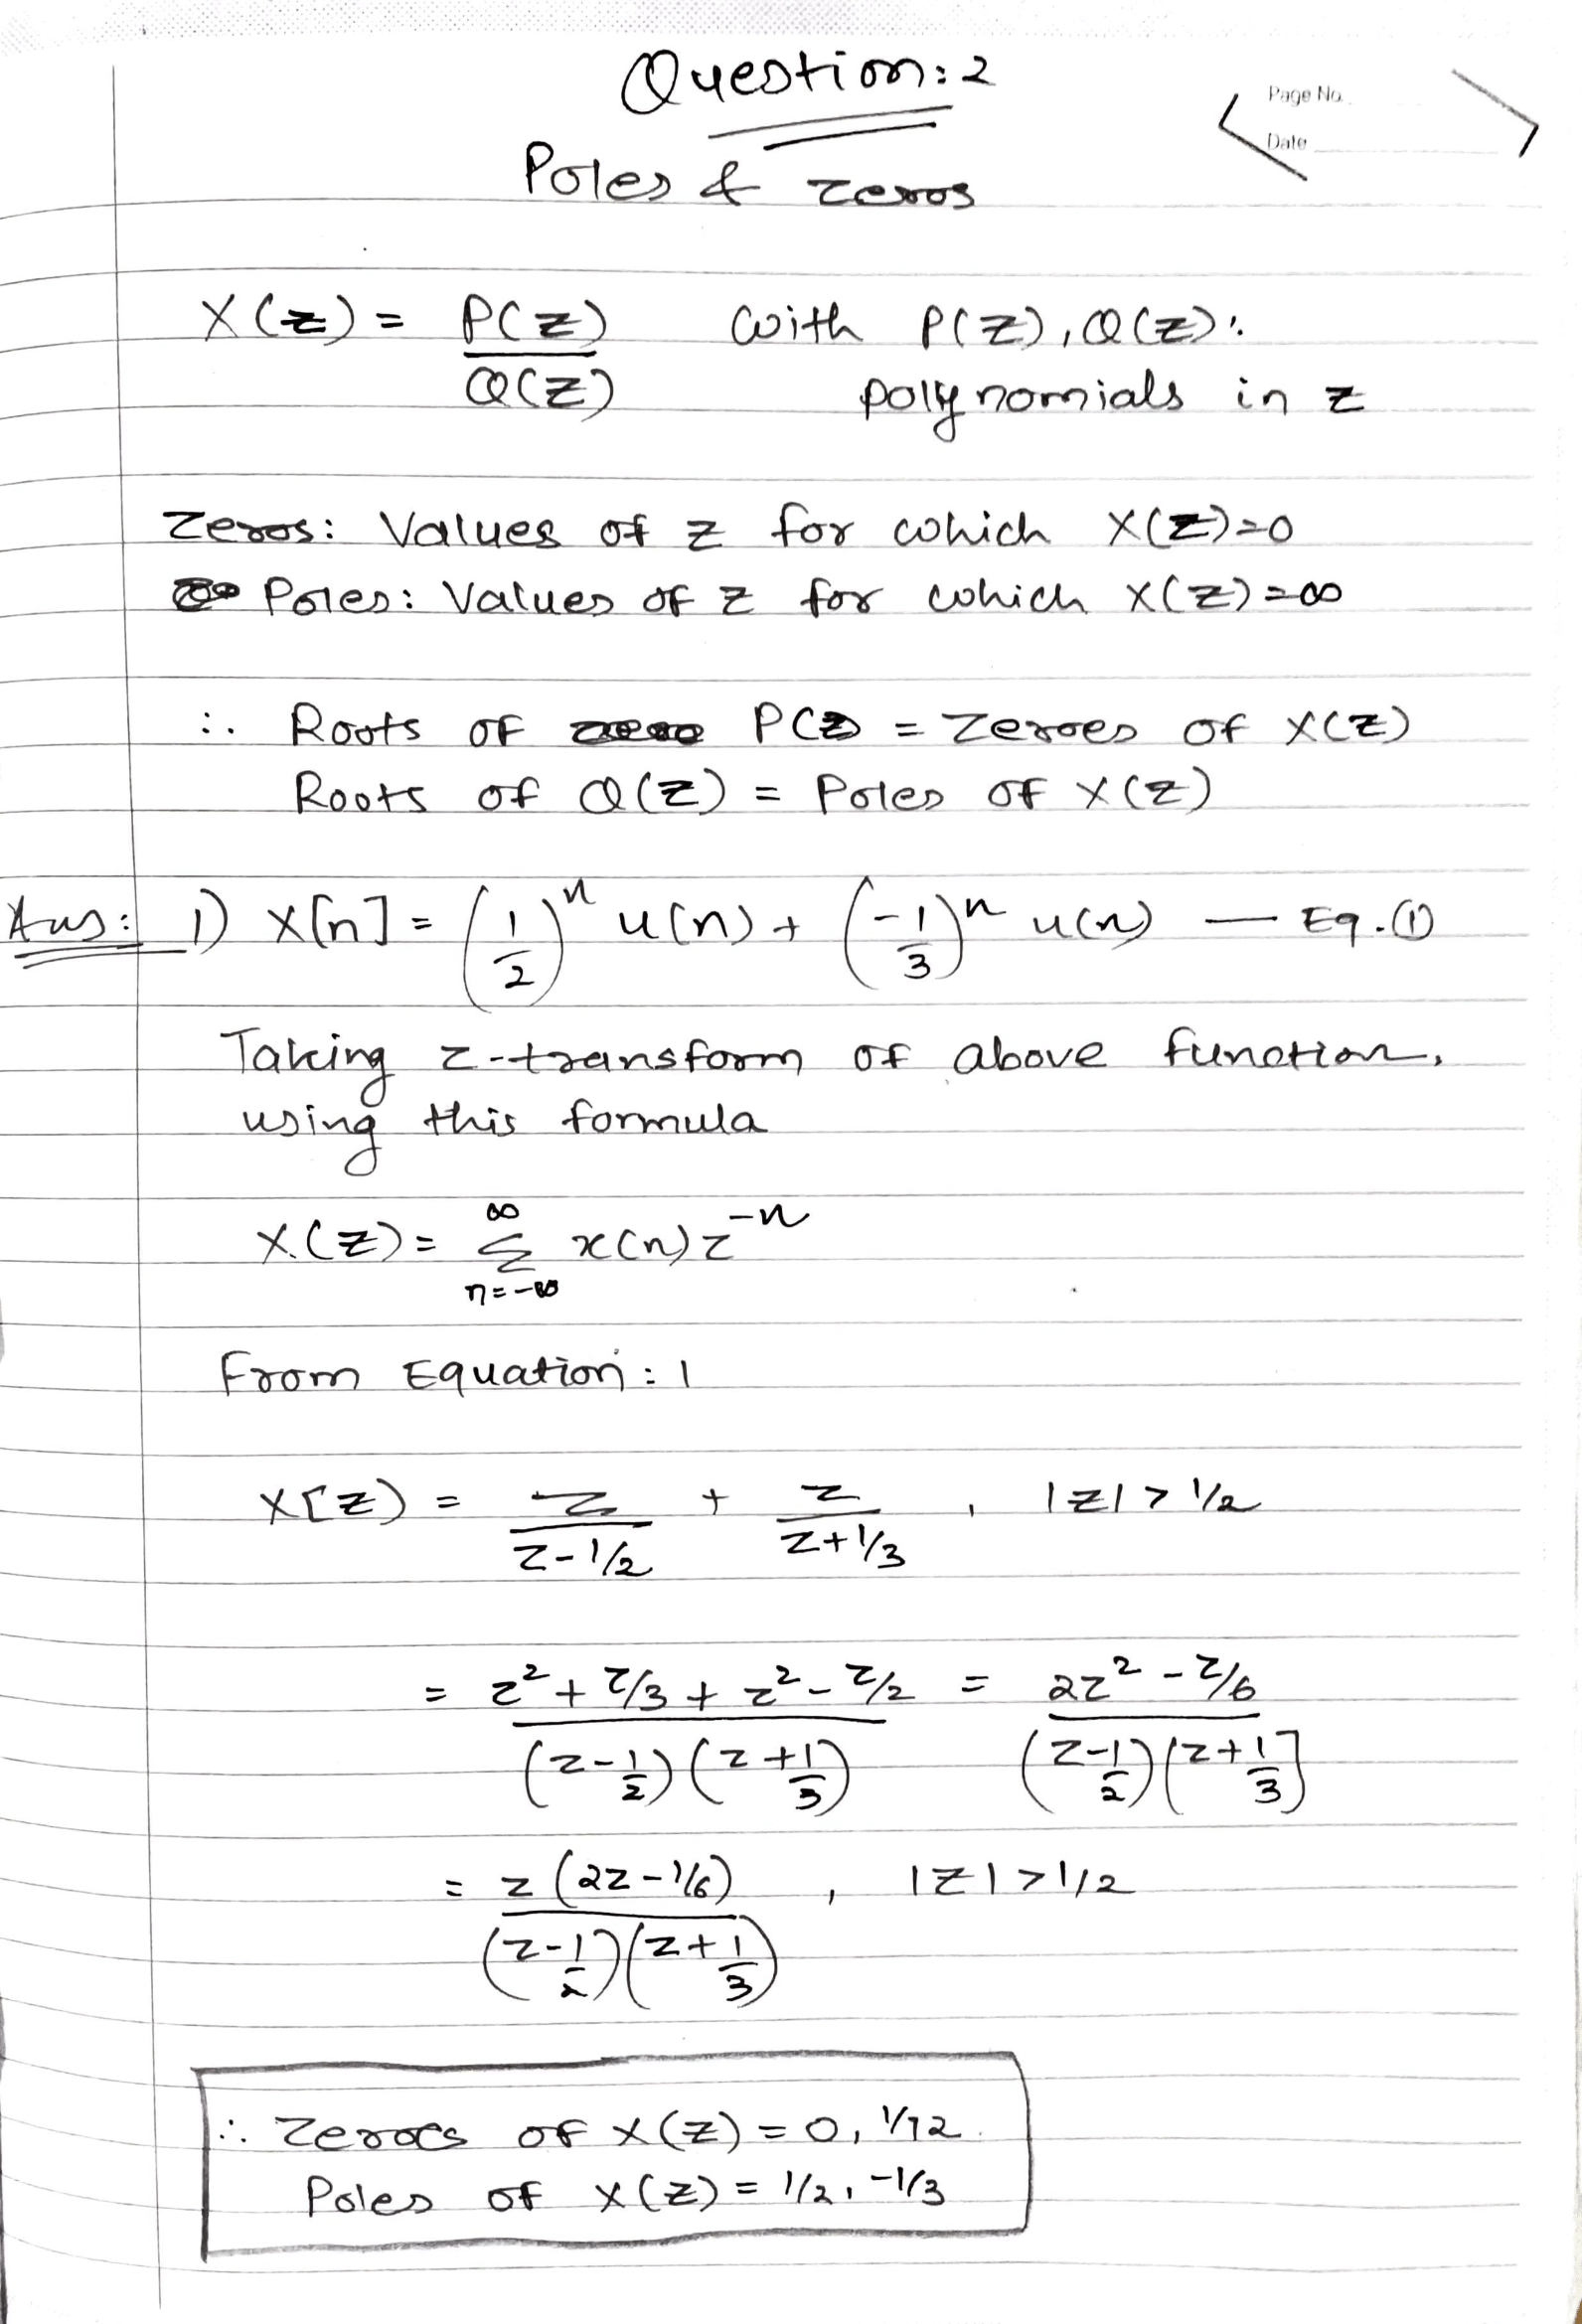 Question: 2
Page No.
Date
Poles & zeros
X(z) = P(z)/Q(z) with P(z), Q(z):
polynomials in z
Zeros: Values of z for which X(z)=0
Poles: Values of z for which X(z)=∞
∴ Roots of P(z) = Zeroes of X(z)
Roots of Q(z) = Poles of X(z)
Ans: 1) X[n] = (1/2)ⁿ u(n) + (-1/3)ⁿ u(n) — Eq. ①
Taking z-transform of above function,
using this formula
X(z) = ∞ Σ n=-∞ x(n) z⁻ⁿ
From Equation: 1
X[z) = z/(z-1/2) + z/(z+1/3) , |z| > 1/2
= (z² + z/3 + z² - z/2)/((z-1/2)(z+1/3)) = (2z² - z/6)/((z-1/2)(z+1/3])
= z(2z-1/6)/((z-1/2)(z+1/3)) , |z| > 1/2
∴ Zeroes of X(z) = 0, 1/12
Poles of X(z) = 1/2, -1/3